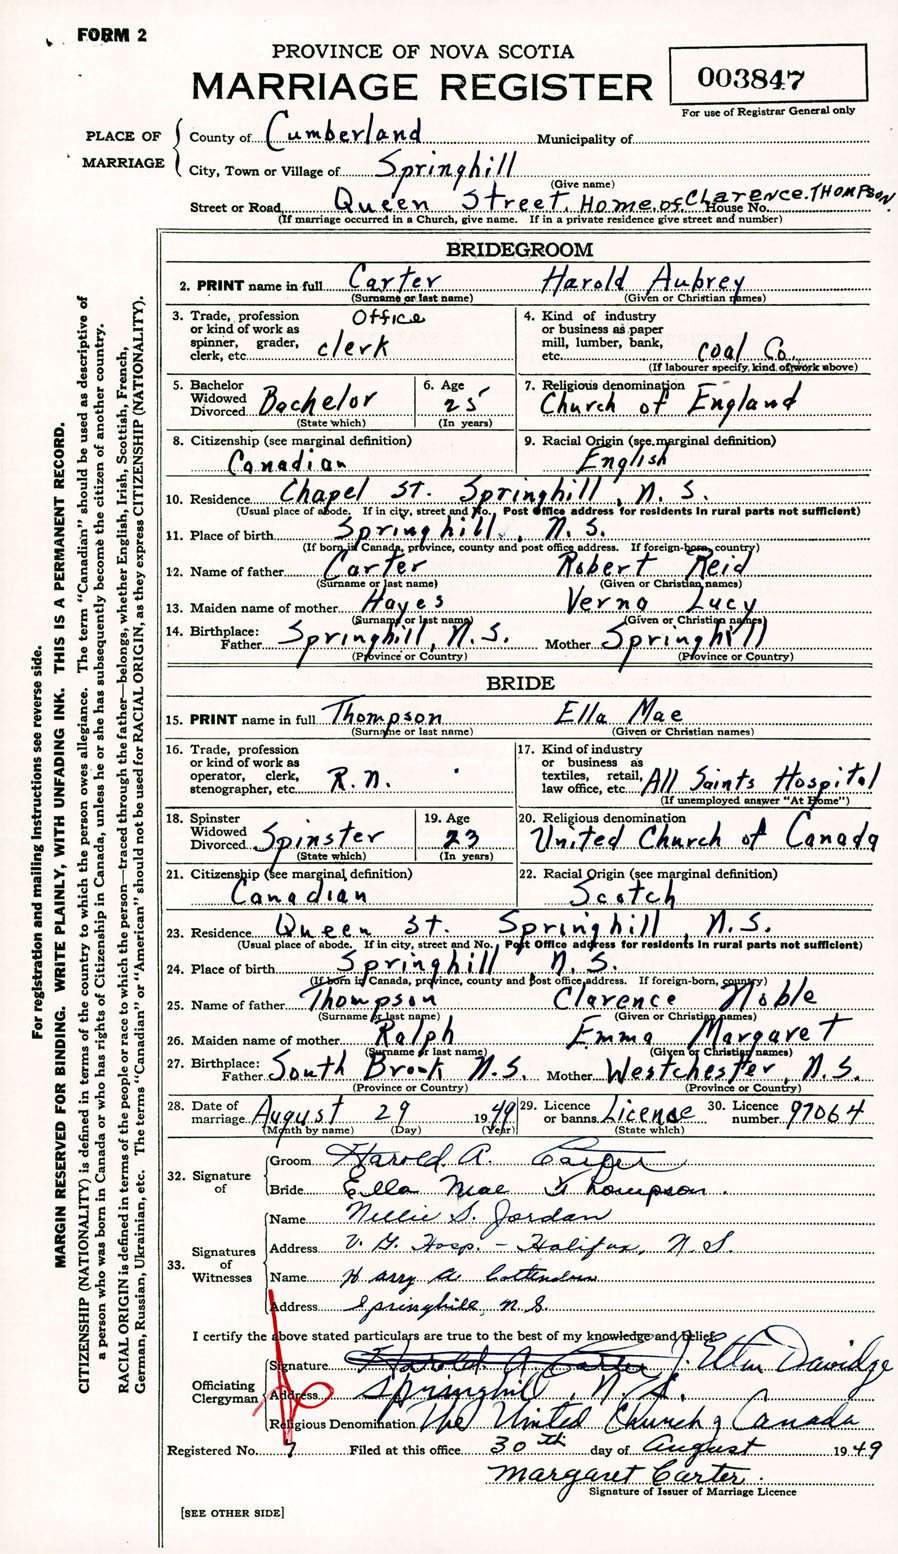 FORM 2
PROVINCE OF NOVA SCOTIA
MARRIAGE REGISTER
003847
For use of Registrar General only
PLACE OF MARRIAGE
County of Cumberland Municipality of
City, Town or Village of Springhill
(Give name)
Street or Road Queen Street. Home of Clarence. THOMPSON. House No.
(If marriage occurred in a Church, give name. If in a private residence give street and number)
BRIDEGROOM
2. PRINT name in full Carter Harold Aubrey
(Surname or last name) (Given or Christian names)
3. Trade, profession or kind of work as spinner, grader, clerk, etc. Office clerk
4. Kind of industry or business as paper mill, lumber, bank, etc. coal Co.
(If labourer specify, kind of work above)
5. Bachelor Widowed Divorced Bachelor
(State which)
6. Age 25
(In years)
7. Religious denomination Church of England
8. Citizenship (see marginal definition) Canadian
9. Racial Origin (see marginal definition) English
10. Residence Chapel St. Springhill, N. S.
(Usual place of abode. If in city, street and No., Post Office address for residents in rural parts not sufficient)
11. Place of birth Springhill, N. S.
(If born in Canada, province, county and post office address. If foreign-born, country)
12. Name of father Carter Robert Reid
(Surname or last name) (Given or Christian names)
13. Maiden name of mother Hayes Verna Lucy
(Surname or last name) (Given or Christian names)
14. Birthplace: Father Springhill, N.S. Mother Springhill
(Province or Country) (Province or Country)
BRIDE
15. PRINT name in full Thompson Ella Mae
(Surname or last name) (Given or Christian names)
16. Trade, profession or kind of work as operator, clerk, stenographer, etc. R.N.
17. Kind of industry or business as textiles, retail, law office, etc. All Saints Hospital
(If unemployed answer "At Home")
18. Spinster Widowed Divorced Spinster
(State which)
19. Age 23
(In years)
20. Religious denomination United Church of Canada
21. Citizenship (see marginal definition) Canadian
22. Racial Origin (see marginal definition) Scotch
23. Residence Queen St. Springhill, N.S.
(Usual place of abode. If in city, street and No., Post Office address for residents in rural parts not sufficient)
24. Place of birth Springhill N. S.
(If born in Canada, province, county and post office address. If foreign-born, country)
25. Name of father Thompson Clarence Noble
(Surname or last name) (Given or Christian names)
26. Maiden name of mother Ralph Emma Margaret
(Surname or last name) (Given or Christian names)
27. Birthplace: Father South Brook N.S. Mother Westchester, N.S.
(Province or Country) (Province or Country)
28. Date of marriage August 29 1949
(Month by name) (Day) (Year)
29. Licence or banns License
(State which)
30. Licence number 97064
32. Signature of
Groom Harold. A. Carter
Bride Ella Mae Thompson.
33. Signatures of Witnesses
Name Nellie S. Jordan
Address V. G. Hosp. - Halifax, N. S.
Name Harry A
Address Springhill, N.S.
I certify the above stated particulars are true to the best of my knowledge and belief.
Officiating Clergyman
Signature Harold. A. Carter J. Davidge
Address Springhill, N.S.
Religious Denomination The United Church of Canada
Registered No. 7 Filed at this office 30th day of August 1949
Margaret Carter.
Signature of Issuer of Marriage Licence
[SEE OTHER SIDE]
For registration and mailing instructions see reverse side.
MARGIN RESERVED FOR BINDING. WRITE PLAINLY, WITH UNFADING INK. THIS IS A PERMANENT RECORD.
CITIZENSHIP (NATIONALITY) is defined in terms of the country to which the person owes allegiance. The term "Canadian" should be used as descriptive of
a person who was born in Canada or who has rights of Citizenship in Canada, unless he or she has subsequently become the citizen of another country.
RACIAL ORIGIN is defined in terms of the people or race to which the person—traced through the father—belongs, whether English, Irish, Scottish, French,
German, Russian, Ukrainian, etc. The terms "Canadian" or "American" should not be used for RACIAL ORIGIN, as they express CITIZENSHIP (NATIONALITY).